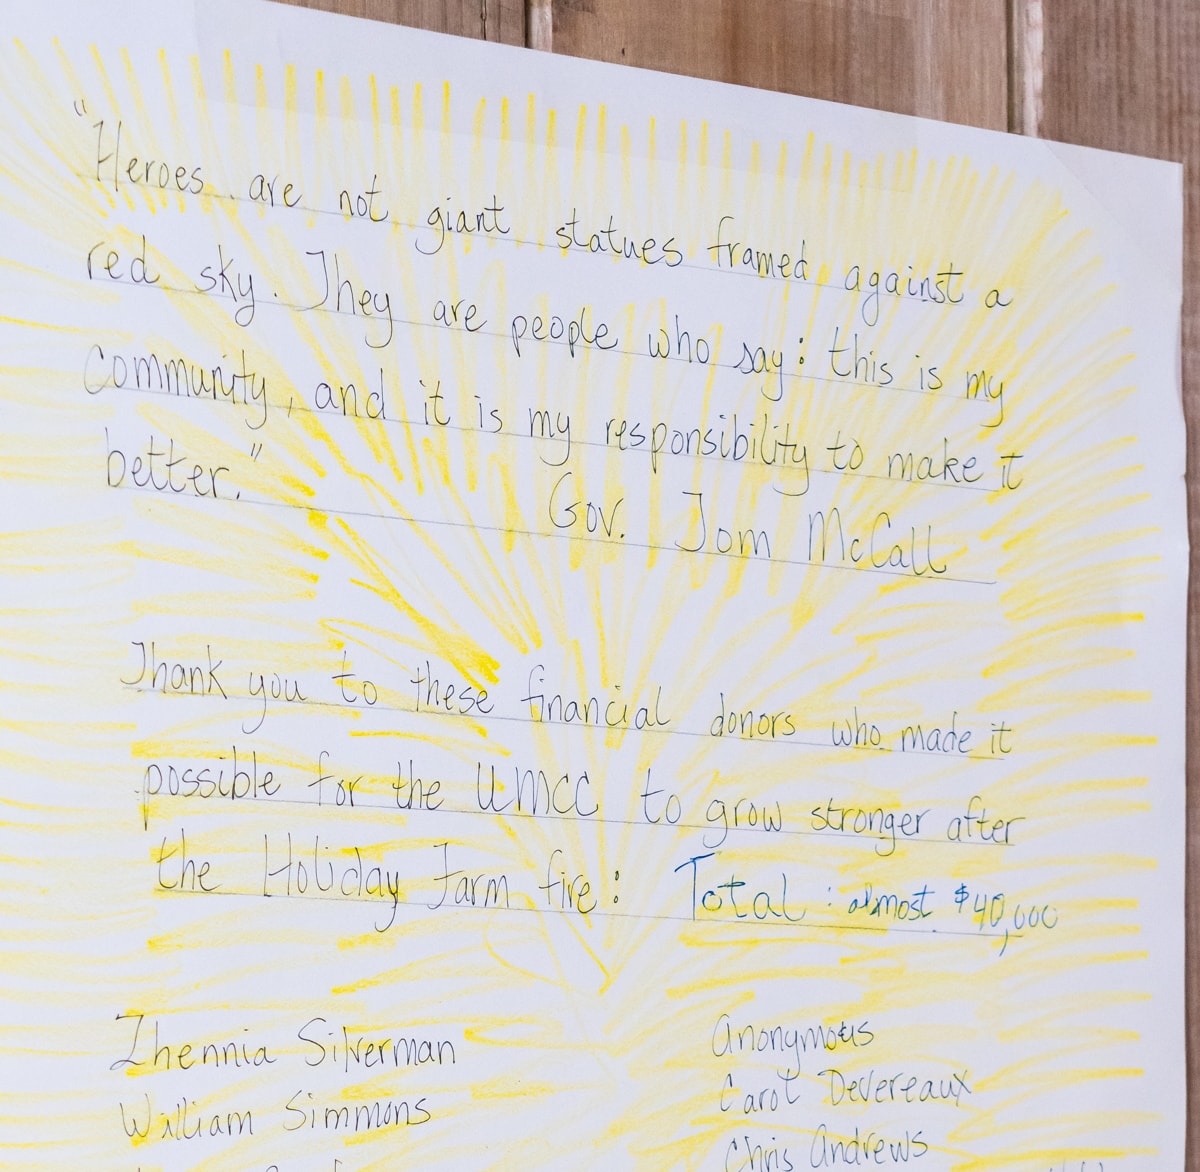 "Heroes are not giant statues framed against a
red sky. They are people who say: this is my
community, and it is my responsibility to make it
better."
Gov. Tom McCall
Thank you to these financial donors who made it
possible for the UMCC to grow stronger after
the Holiday Farm fire: Total: almost $40,000
Zhennia Silverman
William Simmons
Anonymous
Carol Devereaux
Chris Andrews